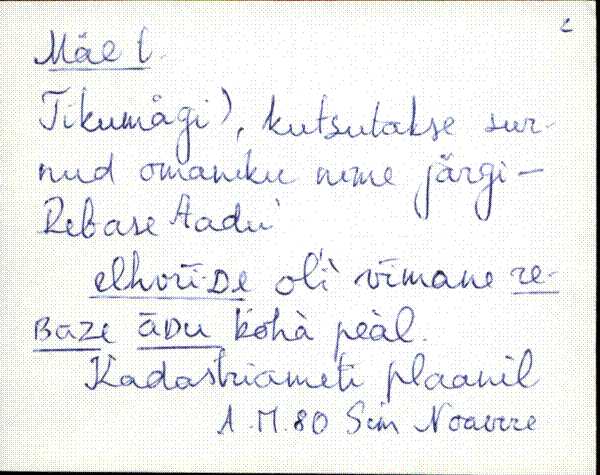 2
Mäe t.
Tikumägi), kutsutakse sur-
nud omaniku nime järgi –
Rebase Aadu
elhvɪ̄ɪ·De oĺi vīmane re-
Baze āDu kohà peàl.
Kadastriameti plaanil